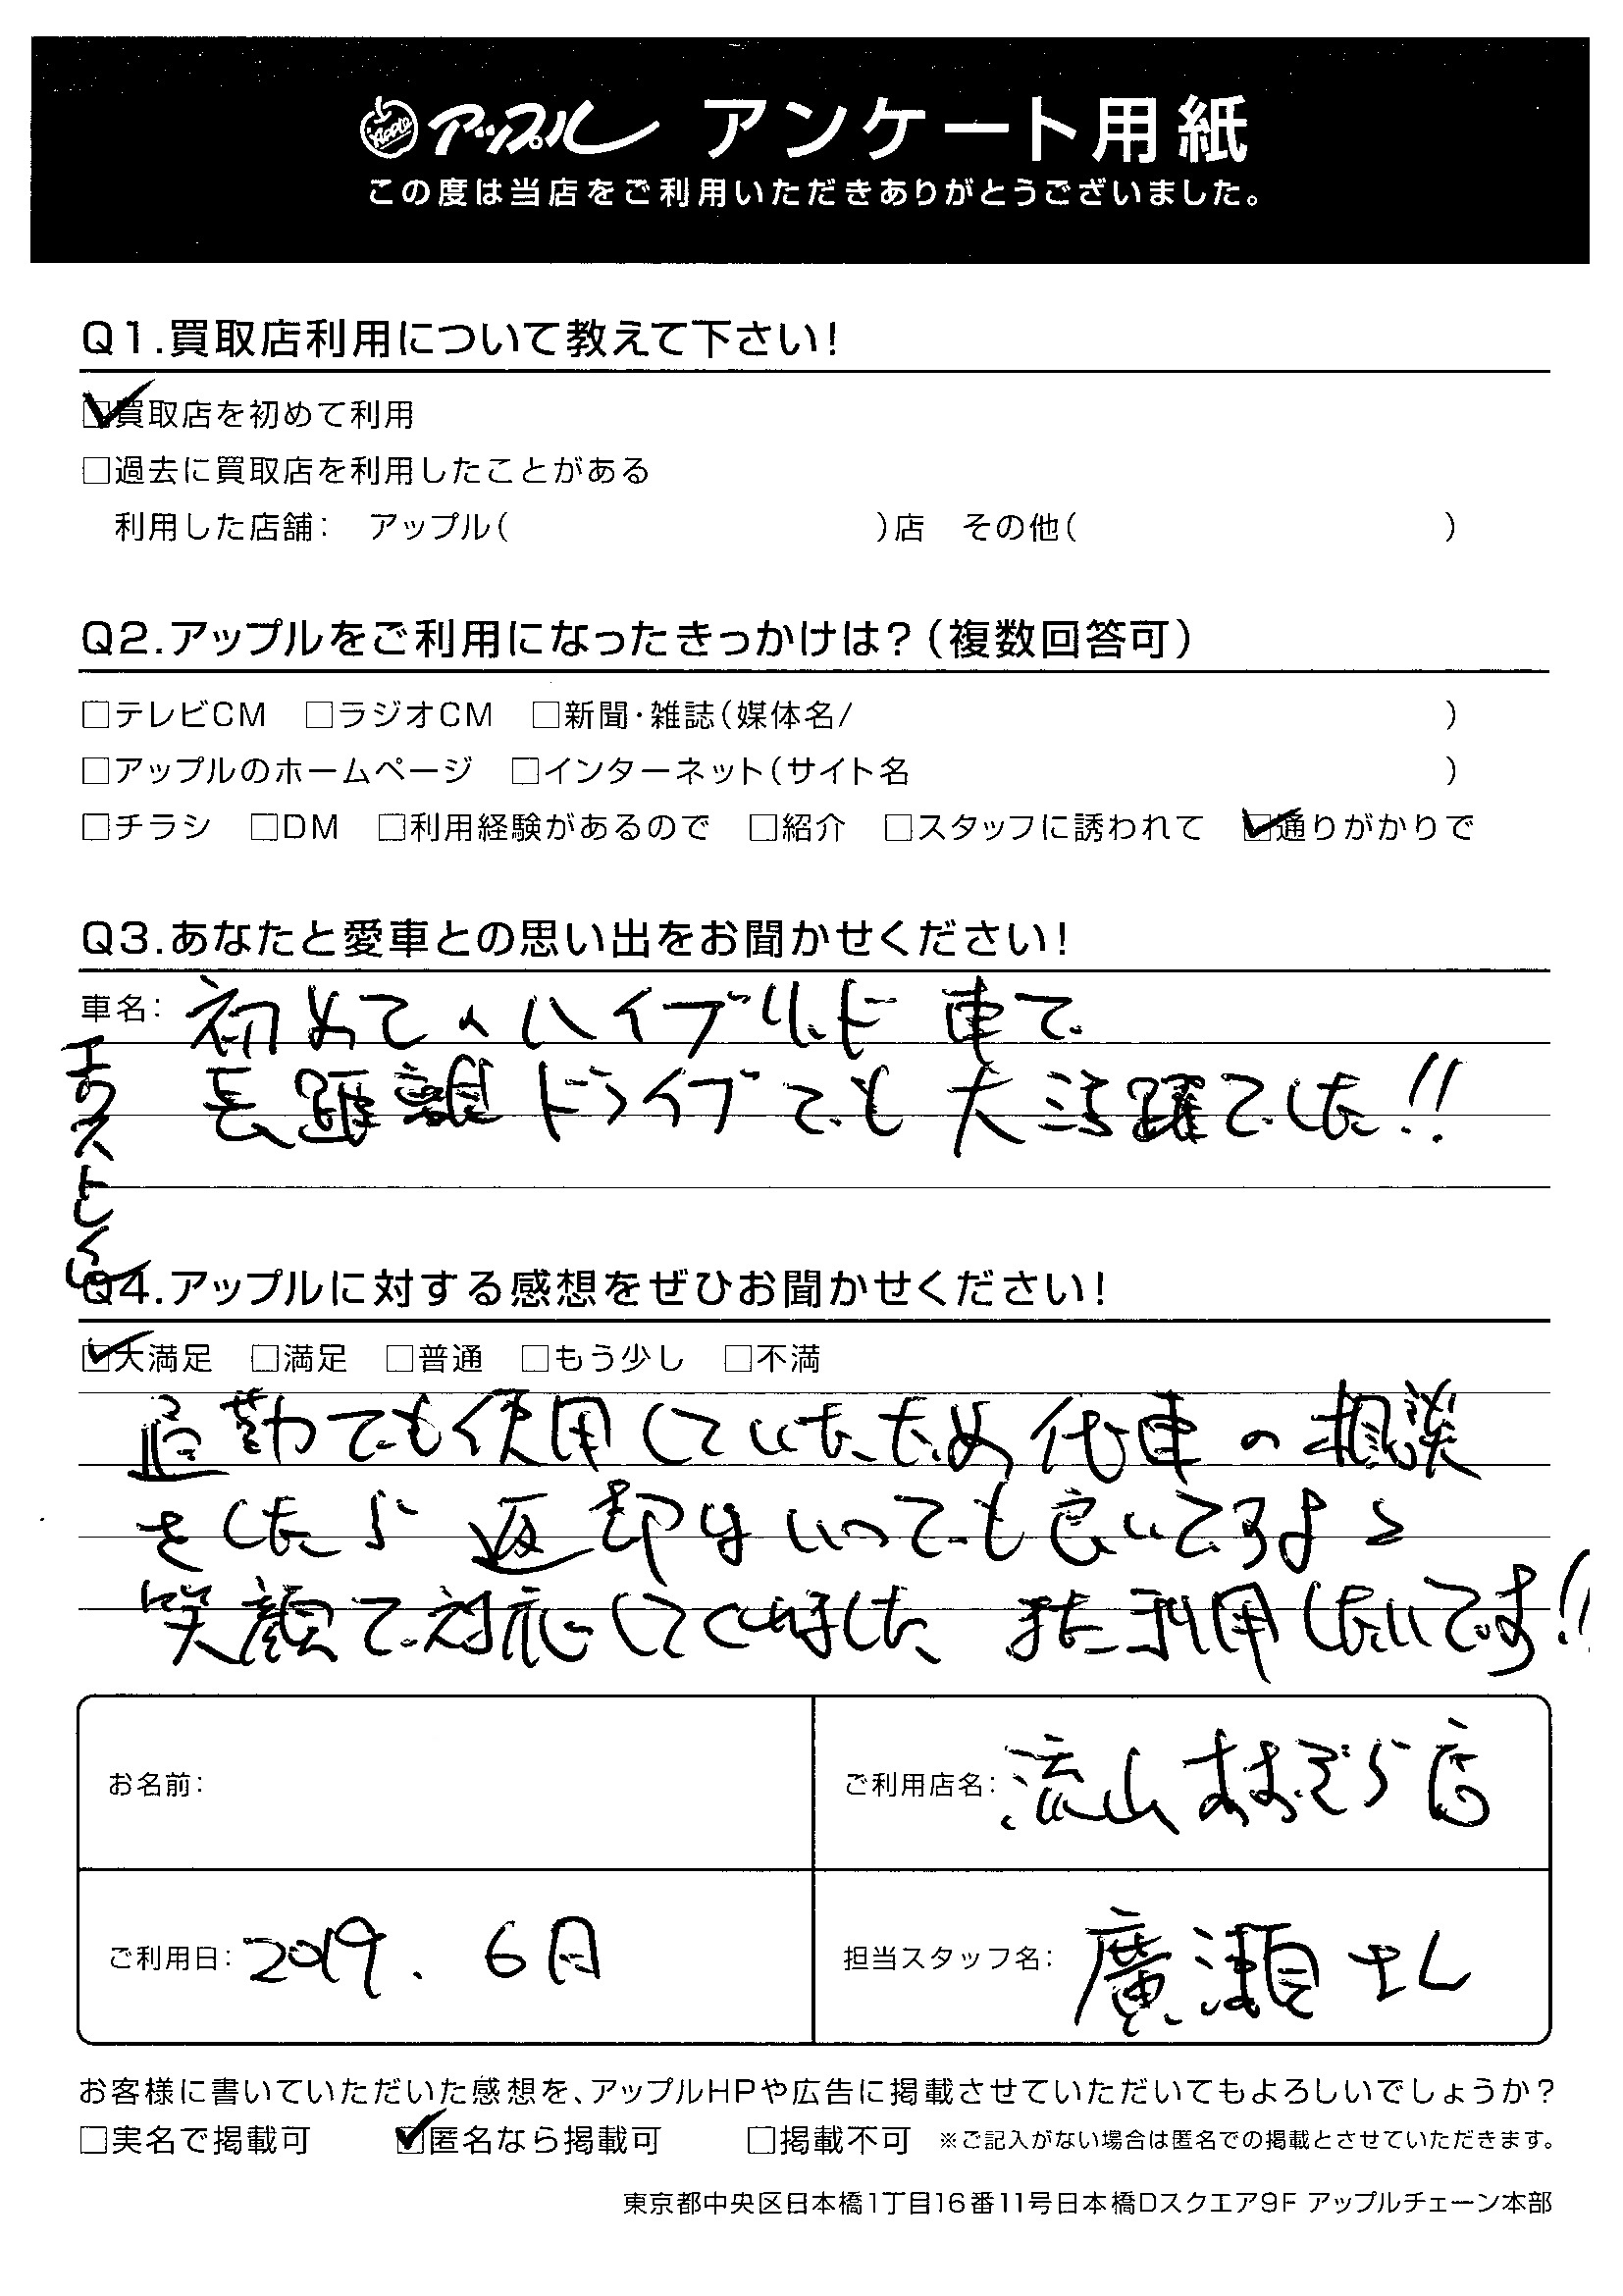 アップル アンケート用紙
この度は当店をご利用いただきありがとうございました。
Q1.買取店利用について教えて下さい!
☑買取店を初めて利用
□過去に買取店を利用したことがある
利用した店舗: アップル( )店 その他( )
Q2.アップルをご利用になったきっかけは?(複数回答可)
□テレビCM □ラジオCM □新聞・雑誌(媒体名/ )
□アップルのホームページ □インターネット(サイト名 )
□チラシ □DM □利用経験があるので □紹介 □スタッフに誘われて ☑通りがかりで
Q3.あなたと愛車との思い出をお聞かせください!
車名: 初めてのハイブリッド車で
エクストレイル
長距離ドライブでも大活躍でした!!
Q4.アップルに対する感想をぜひお聞かせください!
☑大満足 □満足 □普通 □もう少し □不満
通勤でも使用していたため代車の相談
をしたら返却はいつでも良いですよと
笑顔で対応してくれました、また利用したいです!!
お名前:
ご利用店名: 流山おおぞら店
ご利用日: 2019. 6月
担当スタッフ名: 廣瀬さん
お客様に書いていただいた感想を、アップルHPや広告に掲載させていただいてもよろしいでしょうか?
□実名で掲載可 ☑匿名なら掲載可 □掲載不可 ※ご記入がない場合は匿名での掲載とさせていただきます。
東京都中央区日本橋1丁目16番11号日本橋Dスクエア9F アップルチェーン本部